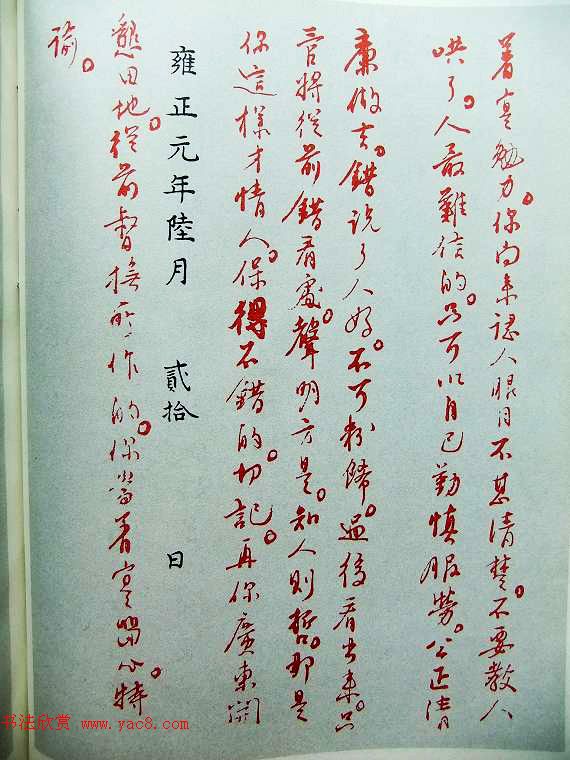 着實勉力。你向來認人眼目不甚清楚。不要教人
哄了。人最難信的。只可以自己勤慎服勞。公正清
廉做去。錯說了人好。不可粉飾。過後看出來。只
管將從前錯看處。聲明方是。知人則哲。那是
你這樣才情人。保得不錯的。切記。再你廣東開
雍正元年陸月 貳拾 日
墾田地。從前督撫所作的。你當着實留心。特
諭。
书法欣赏 www.yac8.com